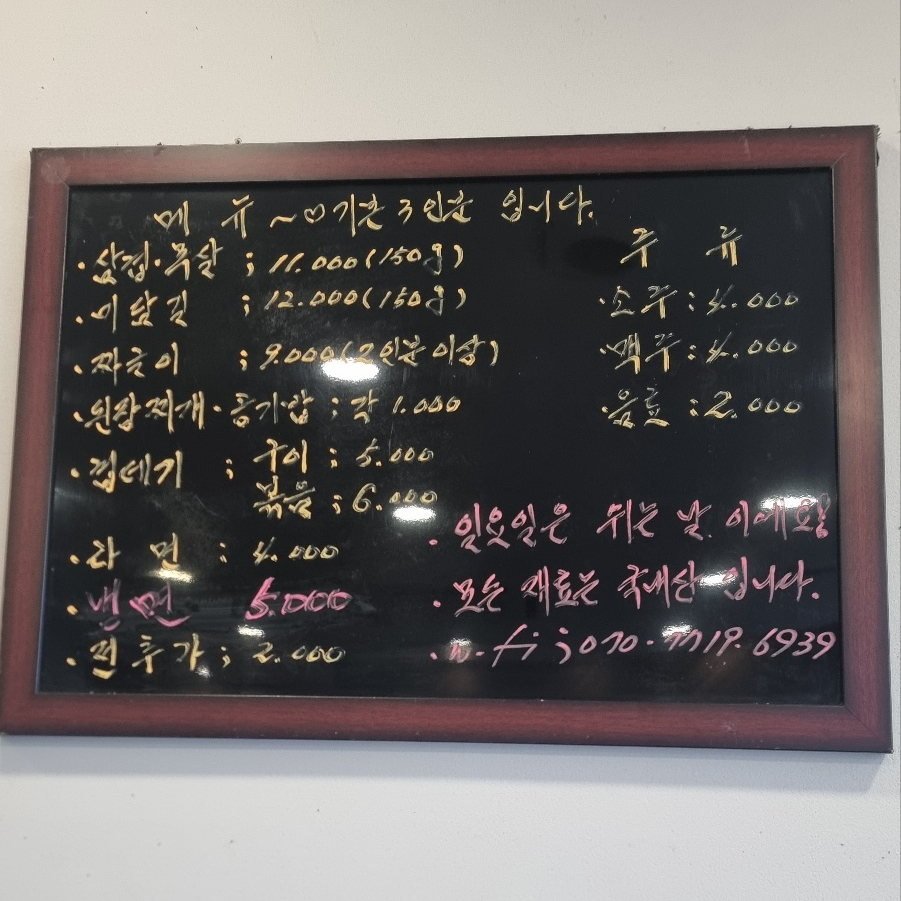 메 뉴 ~♡기본 3인분 입니다.
·삼겹·목살 ; 11.000(150g)
·미삼길 ; 12.000(150g)
·짜글이 ; 9.000(2인분 이상)
·된장찌개·공기밥 ; 각 1.000
·껍데기 ; 구이 ; 5.000
볶음 ; 6.000
·라 면 : 4.000
·냉면 5.000
·전 추가 ; 2.000
주 류
·소주 : 4.000
·맥주 : 4.000
·음료 : 2.000
·일요일은 쉬는 날 이에요!
·모든 재료는 국내산 입니다.
·w.fi ; 070.7719.6939